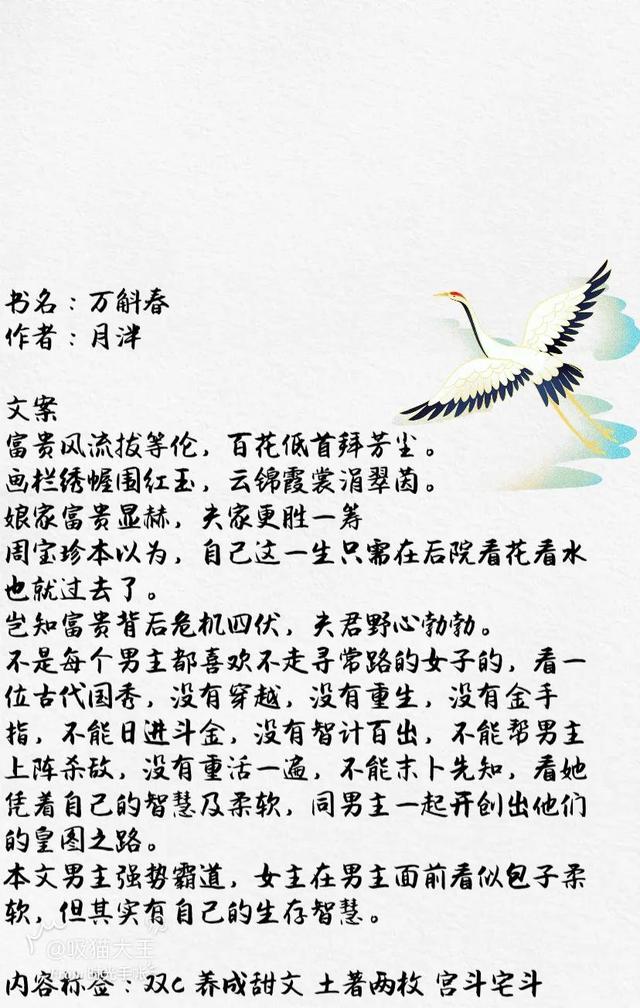 书名：万斛春
作者：月泮
文案
富贵风流拔等伦，百花低首拜芳尘。
画栏绣幄围红玉，云锦霞裳涓翠茵。
娘家富贵显赫，夫家更胜一筹
周宝珍本以为，自己这一生只需在后院看花看水
也就过去了。
岂知富贵背后危机四伏，夫君野心勃勃。
不是每个男主都喜欢不走寻常路的女子的，看一
位古代国秀，没有穿越，没有重生，没有金手
指，不能日进斗金，没有智计百出，不能帮男主
上阵杀敌，没有重活一遍，不能未卜先知，看她
凭着自己的智慧及柔软，同男主一起开创出他们
的皇图之路。
本文男主强势霸道，女主在男主面前看似包子柔
软，但其实有自己的生存智慧。
@吸猫大王
内容标签：双C 养成甜文 土著两枚 宫斗宅斗